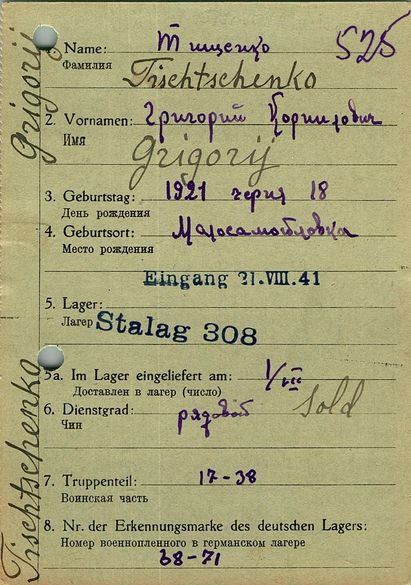 1. Name: Тищенко 525
Фамилия
Tischtschenko
2. Vornamen: Григорий Корнилович
Имя
Grigorij
3. Geburtstag: 1921 18
День рождения
4. Geburtsort:
Место рождения
Eingang 21.VIII.41
5. Lager:
Лагер Stalag 308
5a. Im Lager eingeliefert am: 1/VII
Доставлен в лагер (число)
6. Dienstgrad: рядовой Sold
Чин
7. Truppenteil: 17-38
Воинская часть
8. Nr. der Erkennungsmarke des deutschen Lagers:
Номер военнопленного в германском лагере
68-71
Grigorij
Tischtschenko